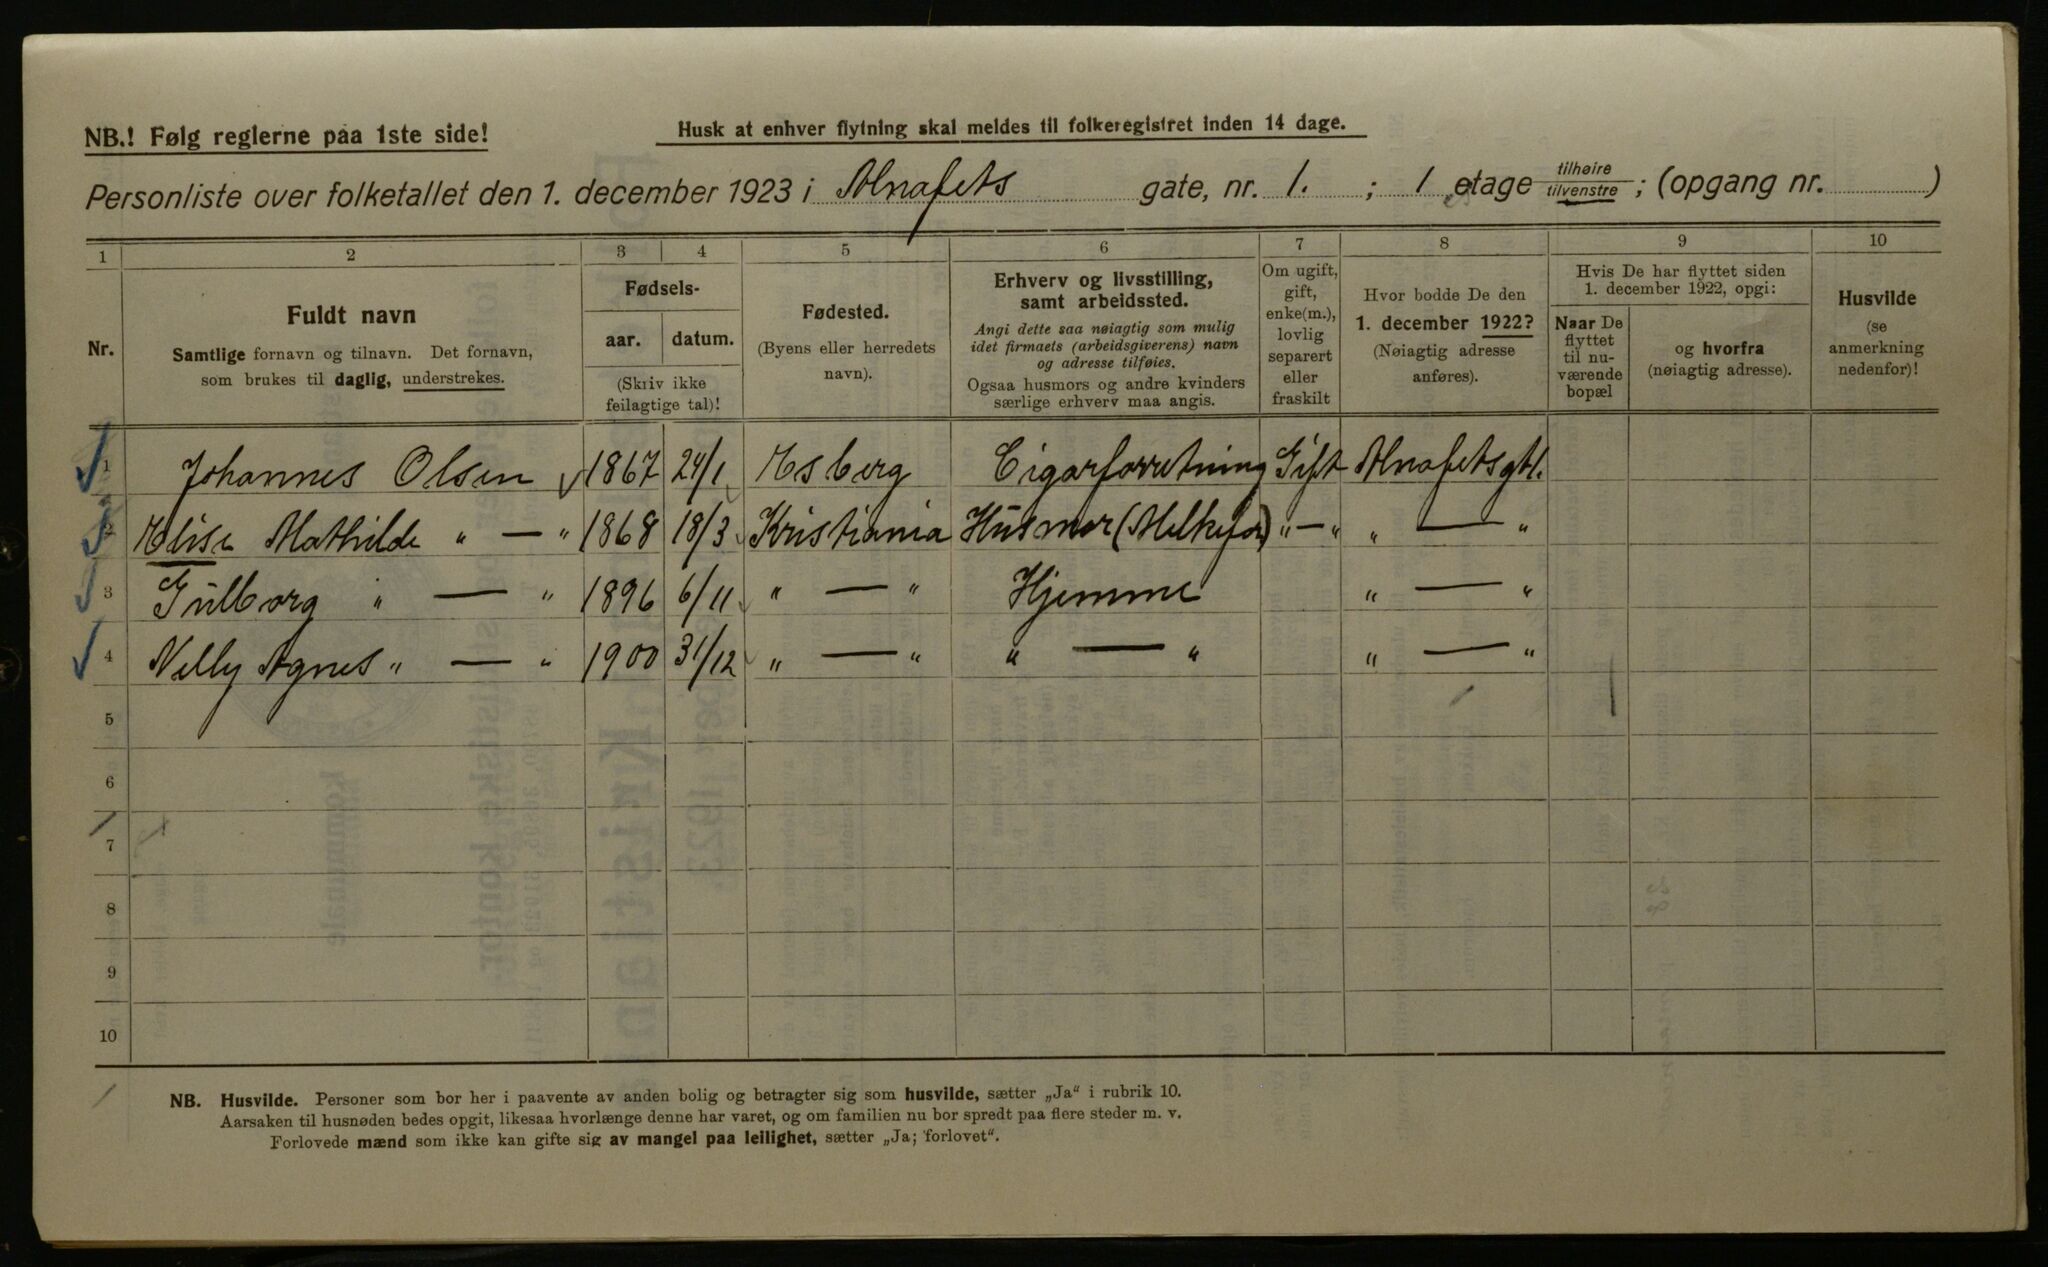 NB.! Følg reglerne paa 1ste side!
Husk at enhver flytning skal meldes til folkeregistret inden 14 dage.
Personliste over folketallet den 1. december 1923 i Alnafets gate, nr. 1. ; 1 etage tilhøire tilvenstre ; (opgang nr. )
1 2 3 4 5 6 7 8 9 10
Nr.
Fuldt navn
Samtlige fornavn og tilnavn. Det fornavn,
som brukes til daglig, understrekes.
Fødsels-
aar. datum.
(Skriv ikke
feilagtige tal)!
Fødested.
(Byens eller herredets
navn).
Erhverv og livsstilling,
samt arbeidssted.
Angi dette saa nøiagtig som mulig
idet firmaets (arbeidsgiverens) navn
og adresse tilføies.
Ogsaa husmors og andre kvinders
særlige erhverv maa angis.
Om ugift,
gift,
enke(m.),
lovlig
separert
eller
fraskilt
Hvor bodde De den
1. december 1922?
(Nøiagtig adresse
anføres).
Hvis De har flyttet siden
1. december 1922, opgi:
Naar De
flyttet
til nu-
værende
bopæl
og hvorfra
(nøiagtig adresse).
Husvilde
(se
anmerkning
nedenfor)!
1 Johannes Olsen 1867 24/1 Esberg Cigarforretning Gift Alnafetsgt 1.
2 Elise Mathilde " — " 1868 18/3 Kristiania Husmor (Melkefor) " — " " — "
3 Gulborg " — " 1896 6/11 " — " Hjemme " — "
4 Nelly Agnes " — " 1900 31/12 " — " " — " " — "
5
6
7
8
9
10
NB. Husvilde. Personer som bor her i paavente av anden bolig og betragter sig som husvilde, sætter „Ja“ i rubrik 10.
Aarsaken til husnøden bedes opgit, likesaa hvorlænge denne har varet, og om familien nu bor spredt paa flere steder m. v.
Forlovede mænd som ikke kan gifte sig av mangel paa leilighet, sætter „Ja; forlovet“.